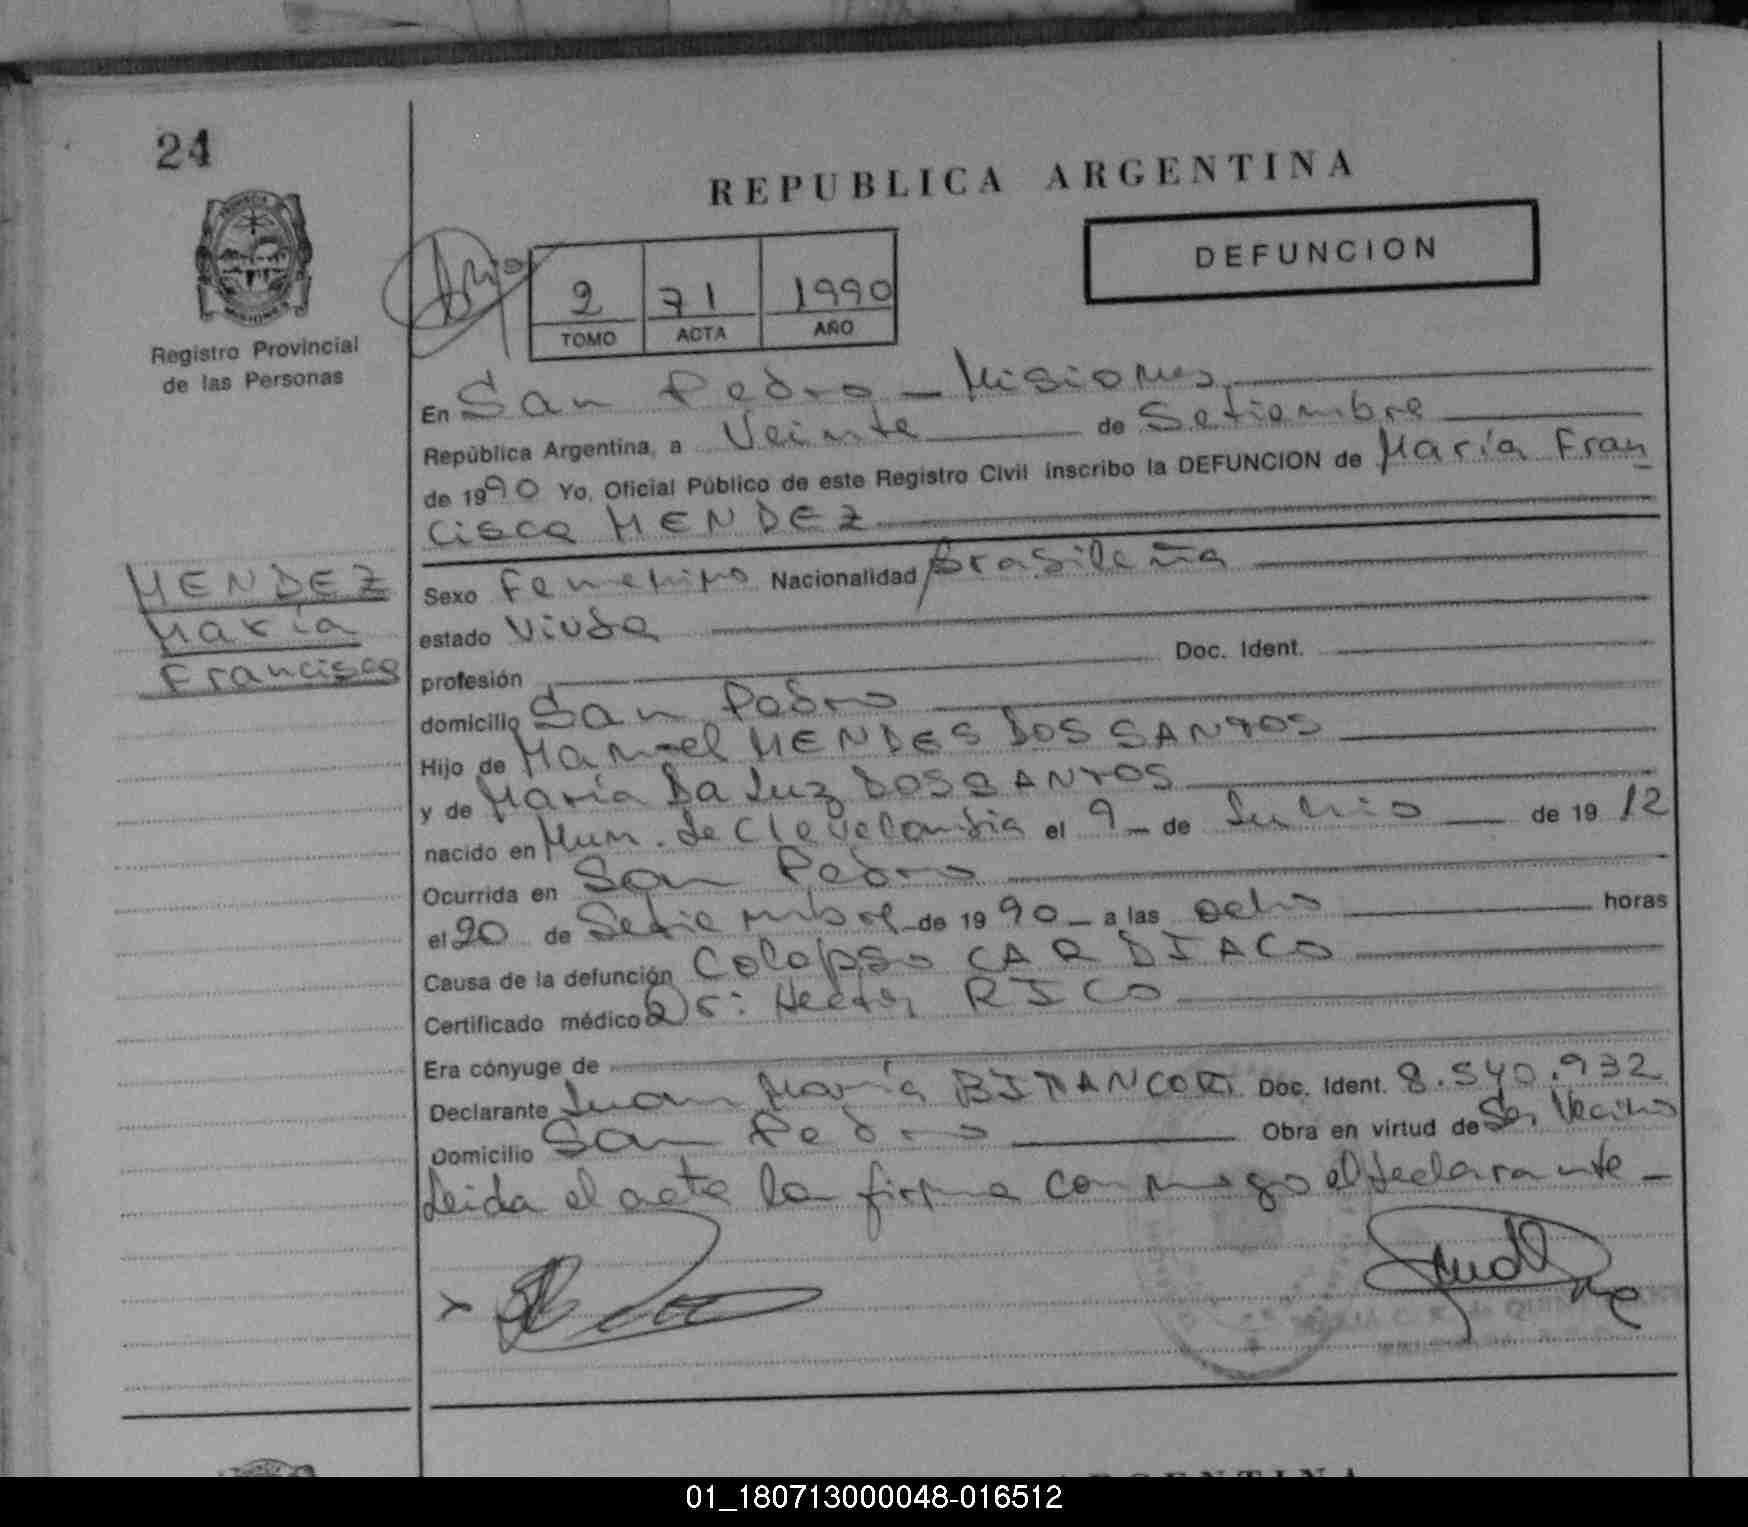 24
REPUBLICA ARGENTINA
DEFUNCION
2 71 1990
TOMO ACTA AÑO
Registro Provincial
de las Personas
En San Pedro - Misiones
República Argentina, a Veinte de Setiembre
de 1990 Yo, Oficial Público de este Registro Civil inscribo la DEFUNCION de María Fran
cisca MENDEZ
MENDEZ
María
Francisca
Sexo Femenino Nacionalidad Brasileña
estado Viuda
profesión Doc. Ident.
domicilio San Pedro
Hijo de Manuel MENDES DOS SANTOS
y de María Da Luz DOS SANTOS
nacido en Mun. de Clevelandia el 9 - de Julio de 1912
Ocurrida en San Pedro
el 20 de Setiembre - de 1990 - a las ocho horas
Causa de la defunción Colapso CARDIACO
Certificado médico Dr: Hector RICO
Era cónyuge de
Declarante Juan María BITANCORT Doc. Ident. 8.540.932
Domicilio San Pedro Obra en virtud de Ser Vecino
Leida el acta la firma conmigo el declarante -
de QUINTANA
ARGENTINA
01_180713000048-016512